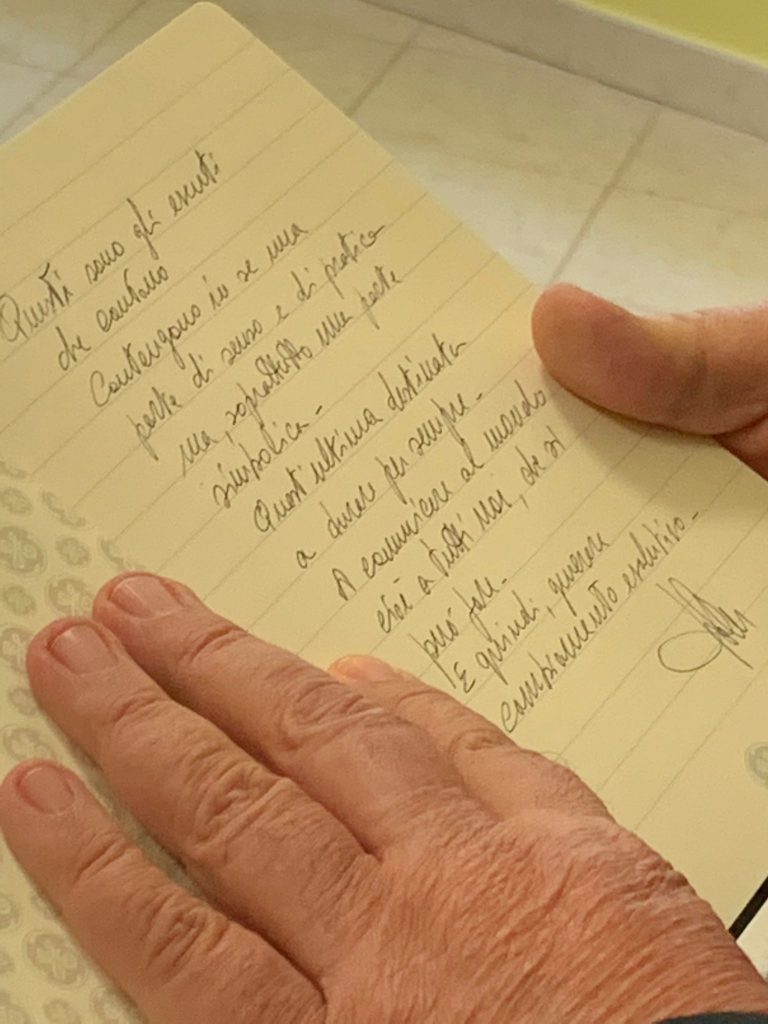 Questi sono gli eventi
che contano
Contengono in se una
parte di senso e di pratica
ma, soprattutto una parte
simbolica -
Quest'ultima destinata
a durare per sempre -
A comunicare al mondo
cioè a tutti noi, che si
può fare -
E quindi, generare
cambiamento evolutivo -